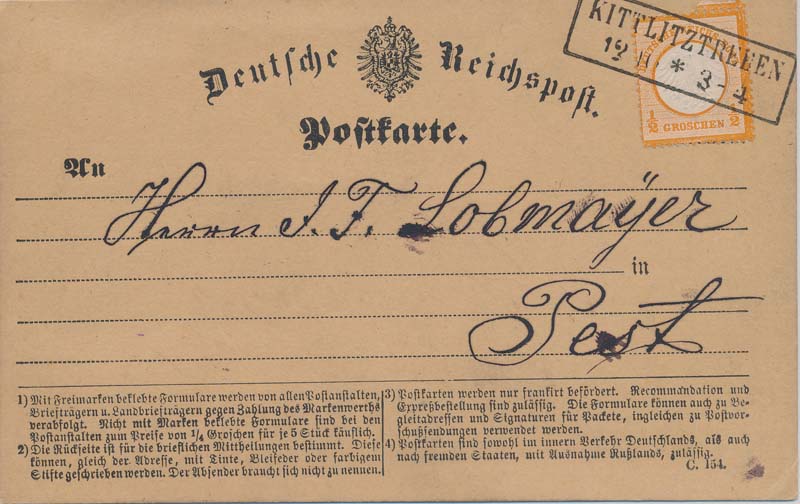 KITTLITZTREBEN
12 11 * 3-4
½ GROSCHEN ½
Deutsche Reichspost.
Postkarte.
An
Herrn J. F. Lobmaÿer
in
Pest
1) Mit Freimarken beklebte Formulare werden von allen Postanstalten,
Briefträgern u. Landbriefträgern gegen Zahlung des Markenwerths
verabfolgt. Nicht mit Marken beklebte Formulare sind bei den
Postanstalten zum Preise von 1/4 Groschen für je 5 Stück käuflich.
2) Die Rückseite ist für die brieflichen Mittheilungen bestimmt. Diese
können, gleich der Adresse, mit Tinte, Bleifeder oder farbigem
Stifte geschrieben werden. Der Absender braucht sich nicht zu nennen.
3) Postkarten werden nur frankirt befördert. Recommandation und
Expreßbestellung sind zulässig. Die Formulare können auch zu Be-
gleitadressen und Signaturen für Packete, ingleichen zu Postvor-
schußsendungen verwendet werden.
4) Postkarten sind sowohl im innern Verkehr Deutschlands, als auch
nach fremden Staaten, mit Ausnahme Rußlands, zulässig.
C. 154.